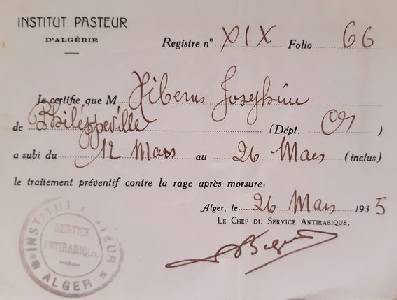 INSTITUT PASTEUR
D'ALGÉRIE
Registre n° XIX Folio 66
Je certifie que M Hiberus Joséphine
de Philippeville (Dépt.
a subi du 12 Mars au 26 Mars (inclus)
le traitement préventif contre la rage après morsure.
Alger, le 26 Mars 1935
LE CHEF DU SERVICE ANTIRABIQUE.
INSTITUT PASTEUR
SERVICE
ANTIRABIQUE
ALGER